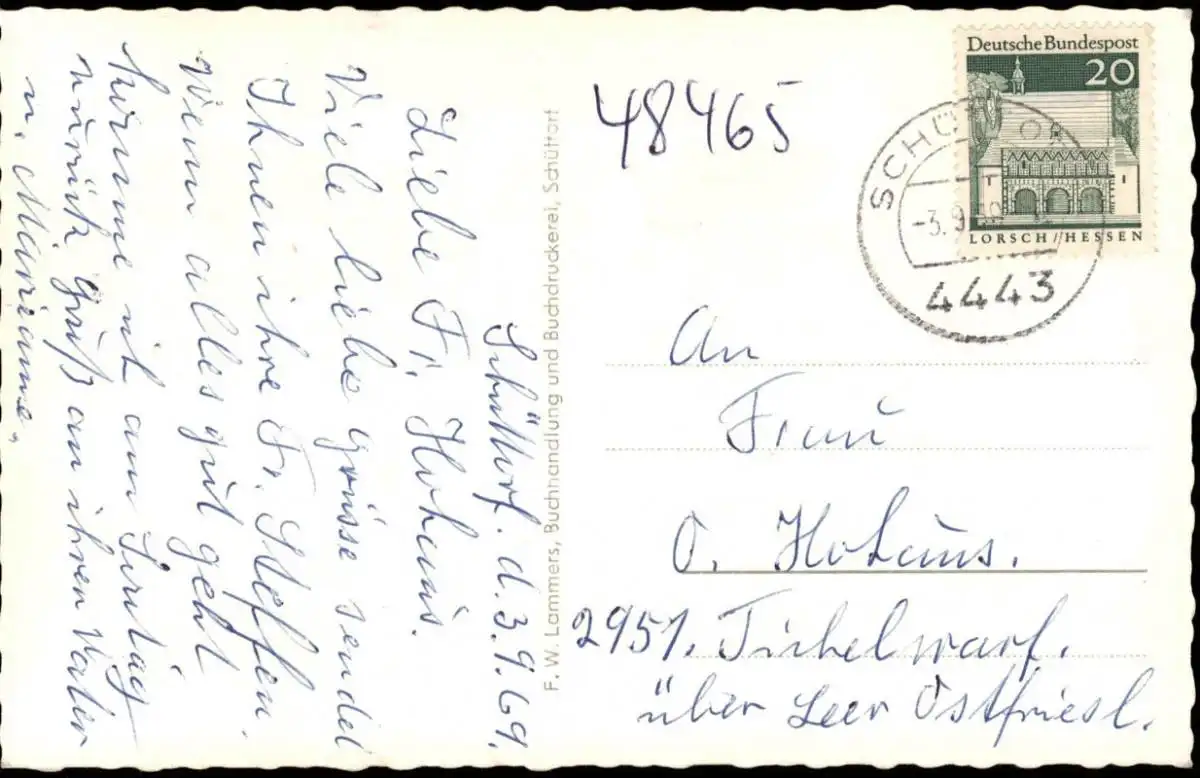 Schüttorf. d. 3.9.69.
Liebe Fr. Hohaus.
Viele liebe grüsse sendet
Ihnen ihre Fr. Steffen.
Wenn alles gut geht
komme ich am Sontag
zurück gruß an ihren Vater
u. Marianne.
F. W. Lammers, Buchhandlung und Buchdruckerei, Schüttorf
48465
Deutsche Bundespost
20
LORSCH/HESSEN
SCHÜTTORF
-3.9.69
4443
An
Frau
O. Hohaus.
2951. Tichelwarf.
über Leer Ostfriesl.